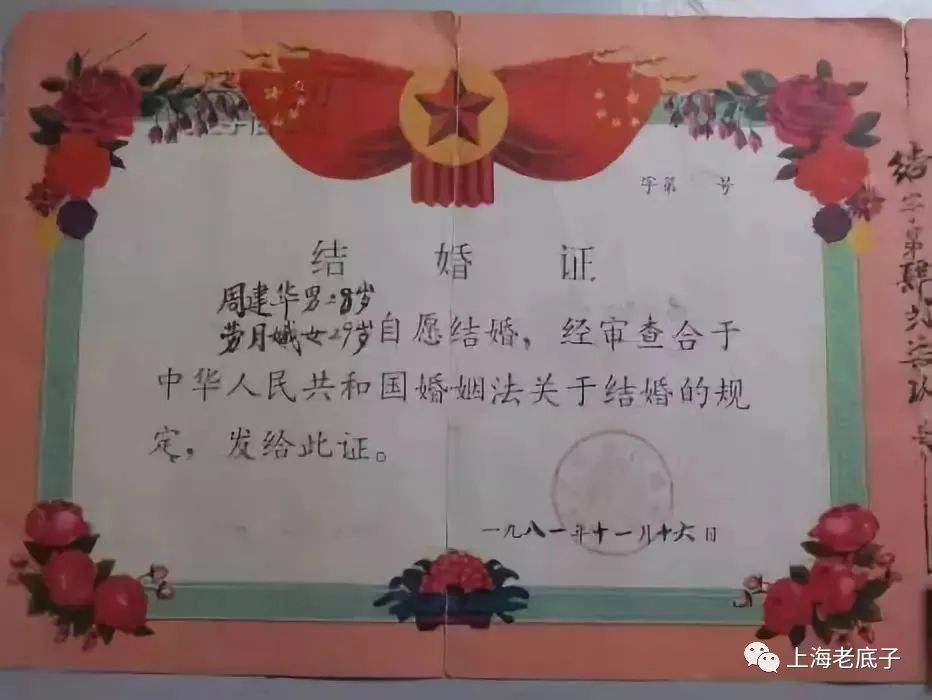 字第 号
结婚证
周建华男28岁
劳月娥女29岁自愿结婚，经审查合于
中华人民共和国婚姻法关于结婚的规
定，发给此证。
一九八一年十一月十六日
结字第肆
号
上海老底子